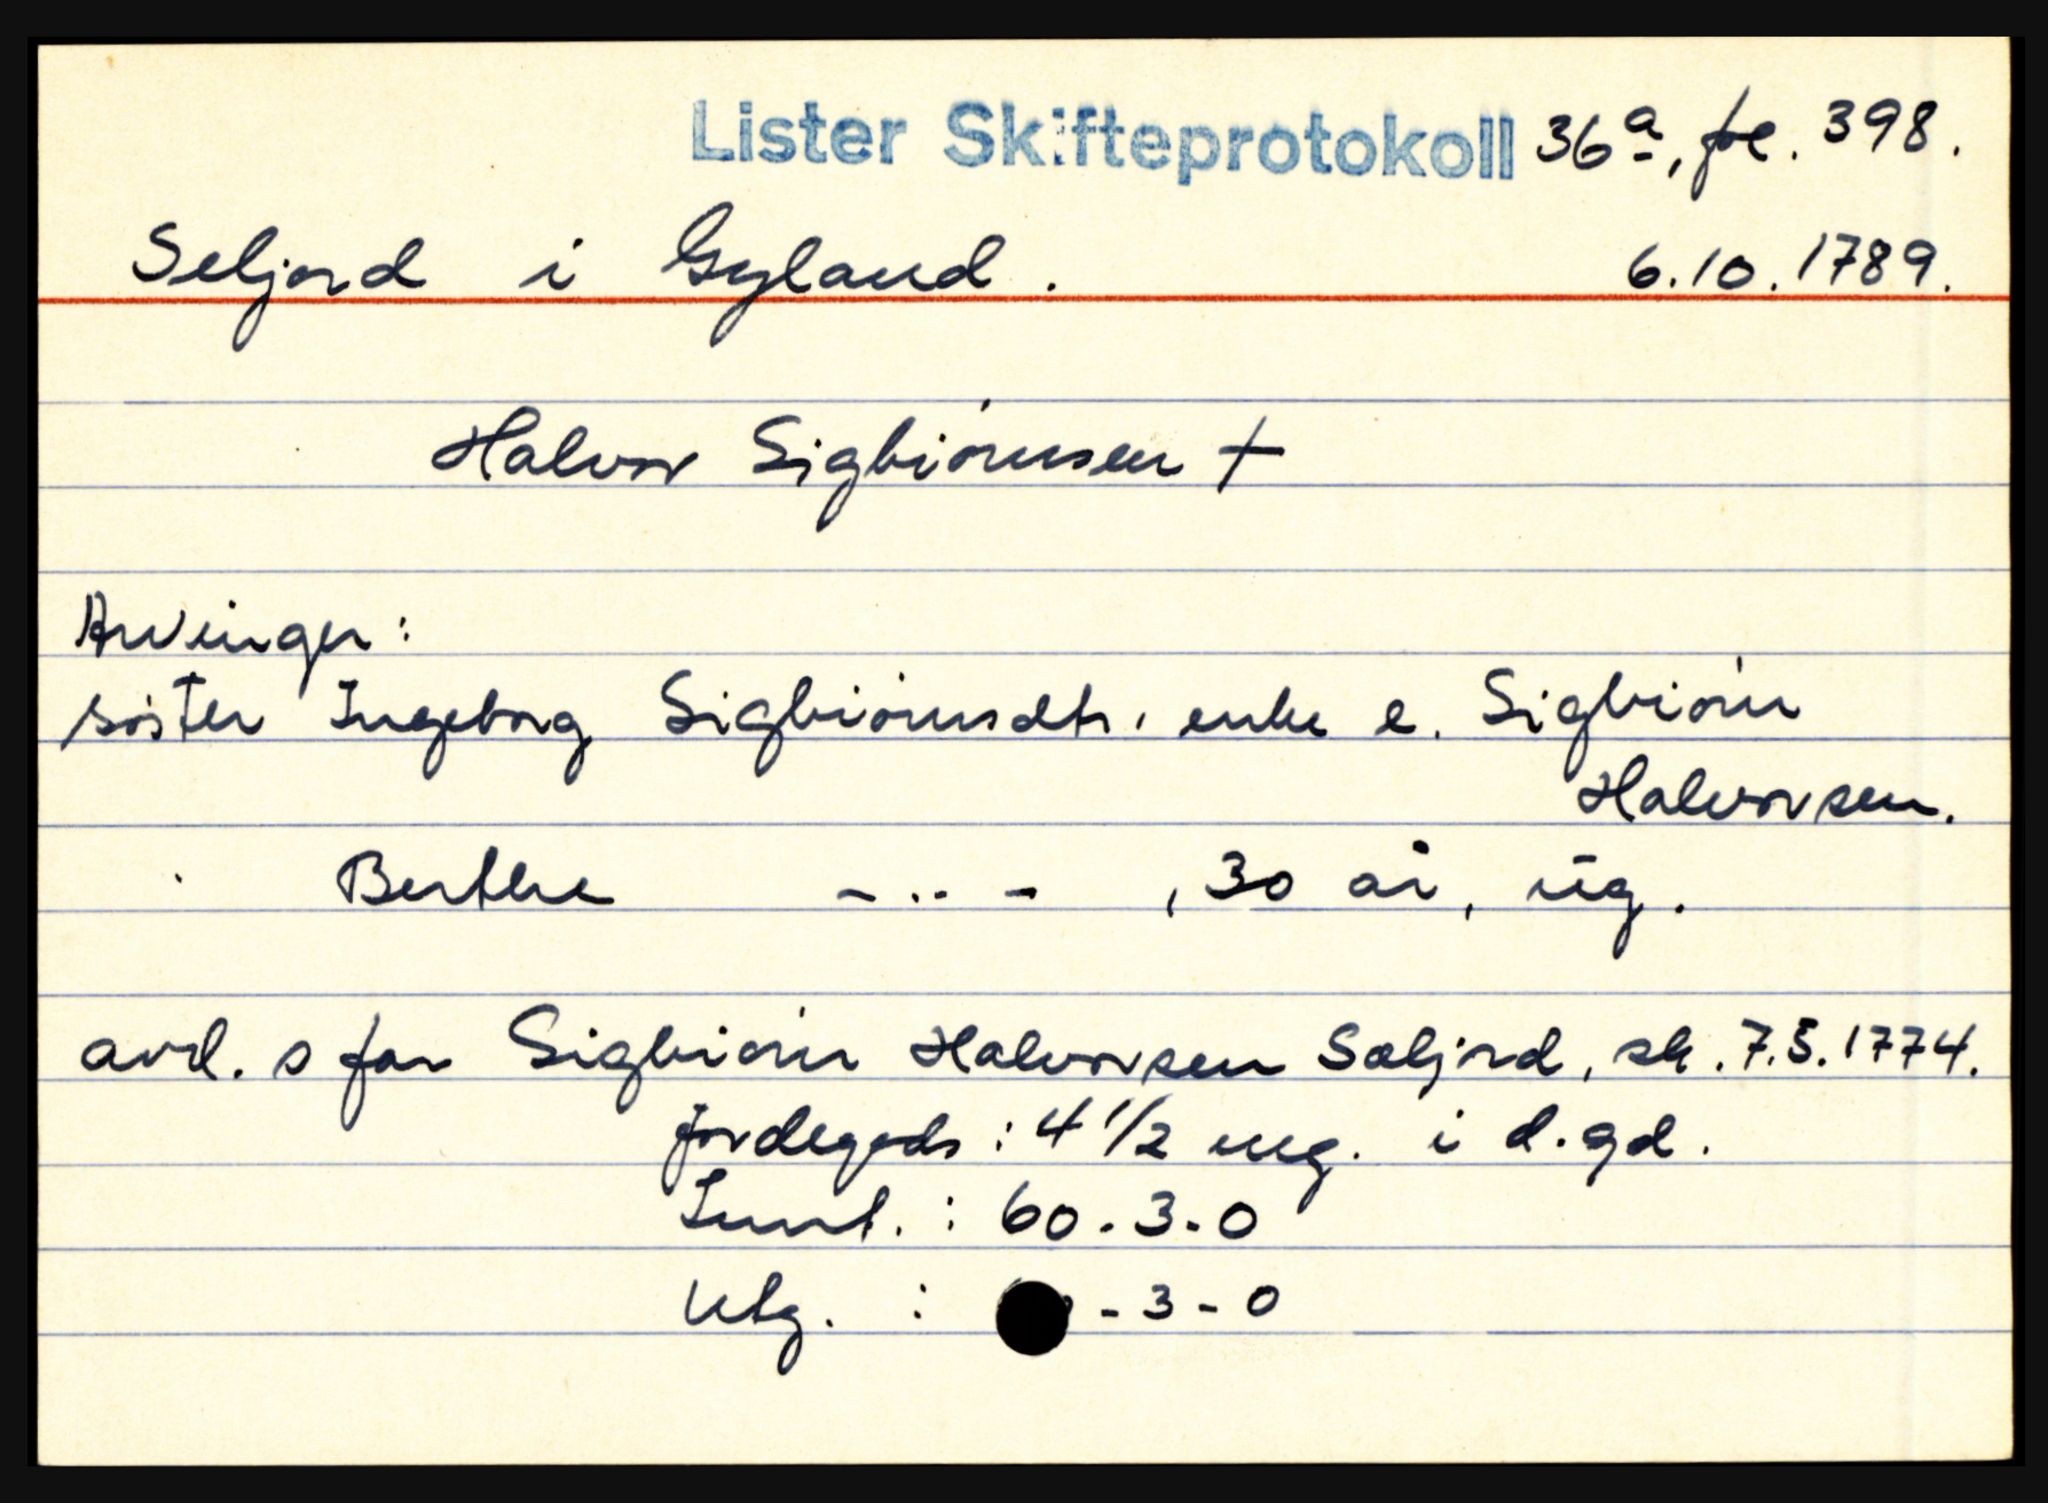 Lister Skifteprotokoll 36a, fol. 398.
Seljord i Gyland. 6.10.1789.
Halvor Sigbiørnsen †
Arvinger:
søster Ingeborg Sigbiørnsdtr. enke e. Sigbiørn
Halvorsen.
Berthe - .. - , 30 år, ug.
avd. s far Sigbiørn Halvorsen Sæljord, sk. 7.5.1774.
Jordegods: 4 1/2 mg. i d. gd.
Innt.: 60-3-0
Utg. : -3-0